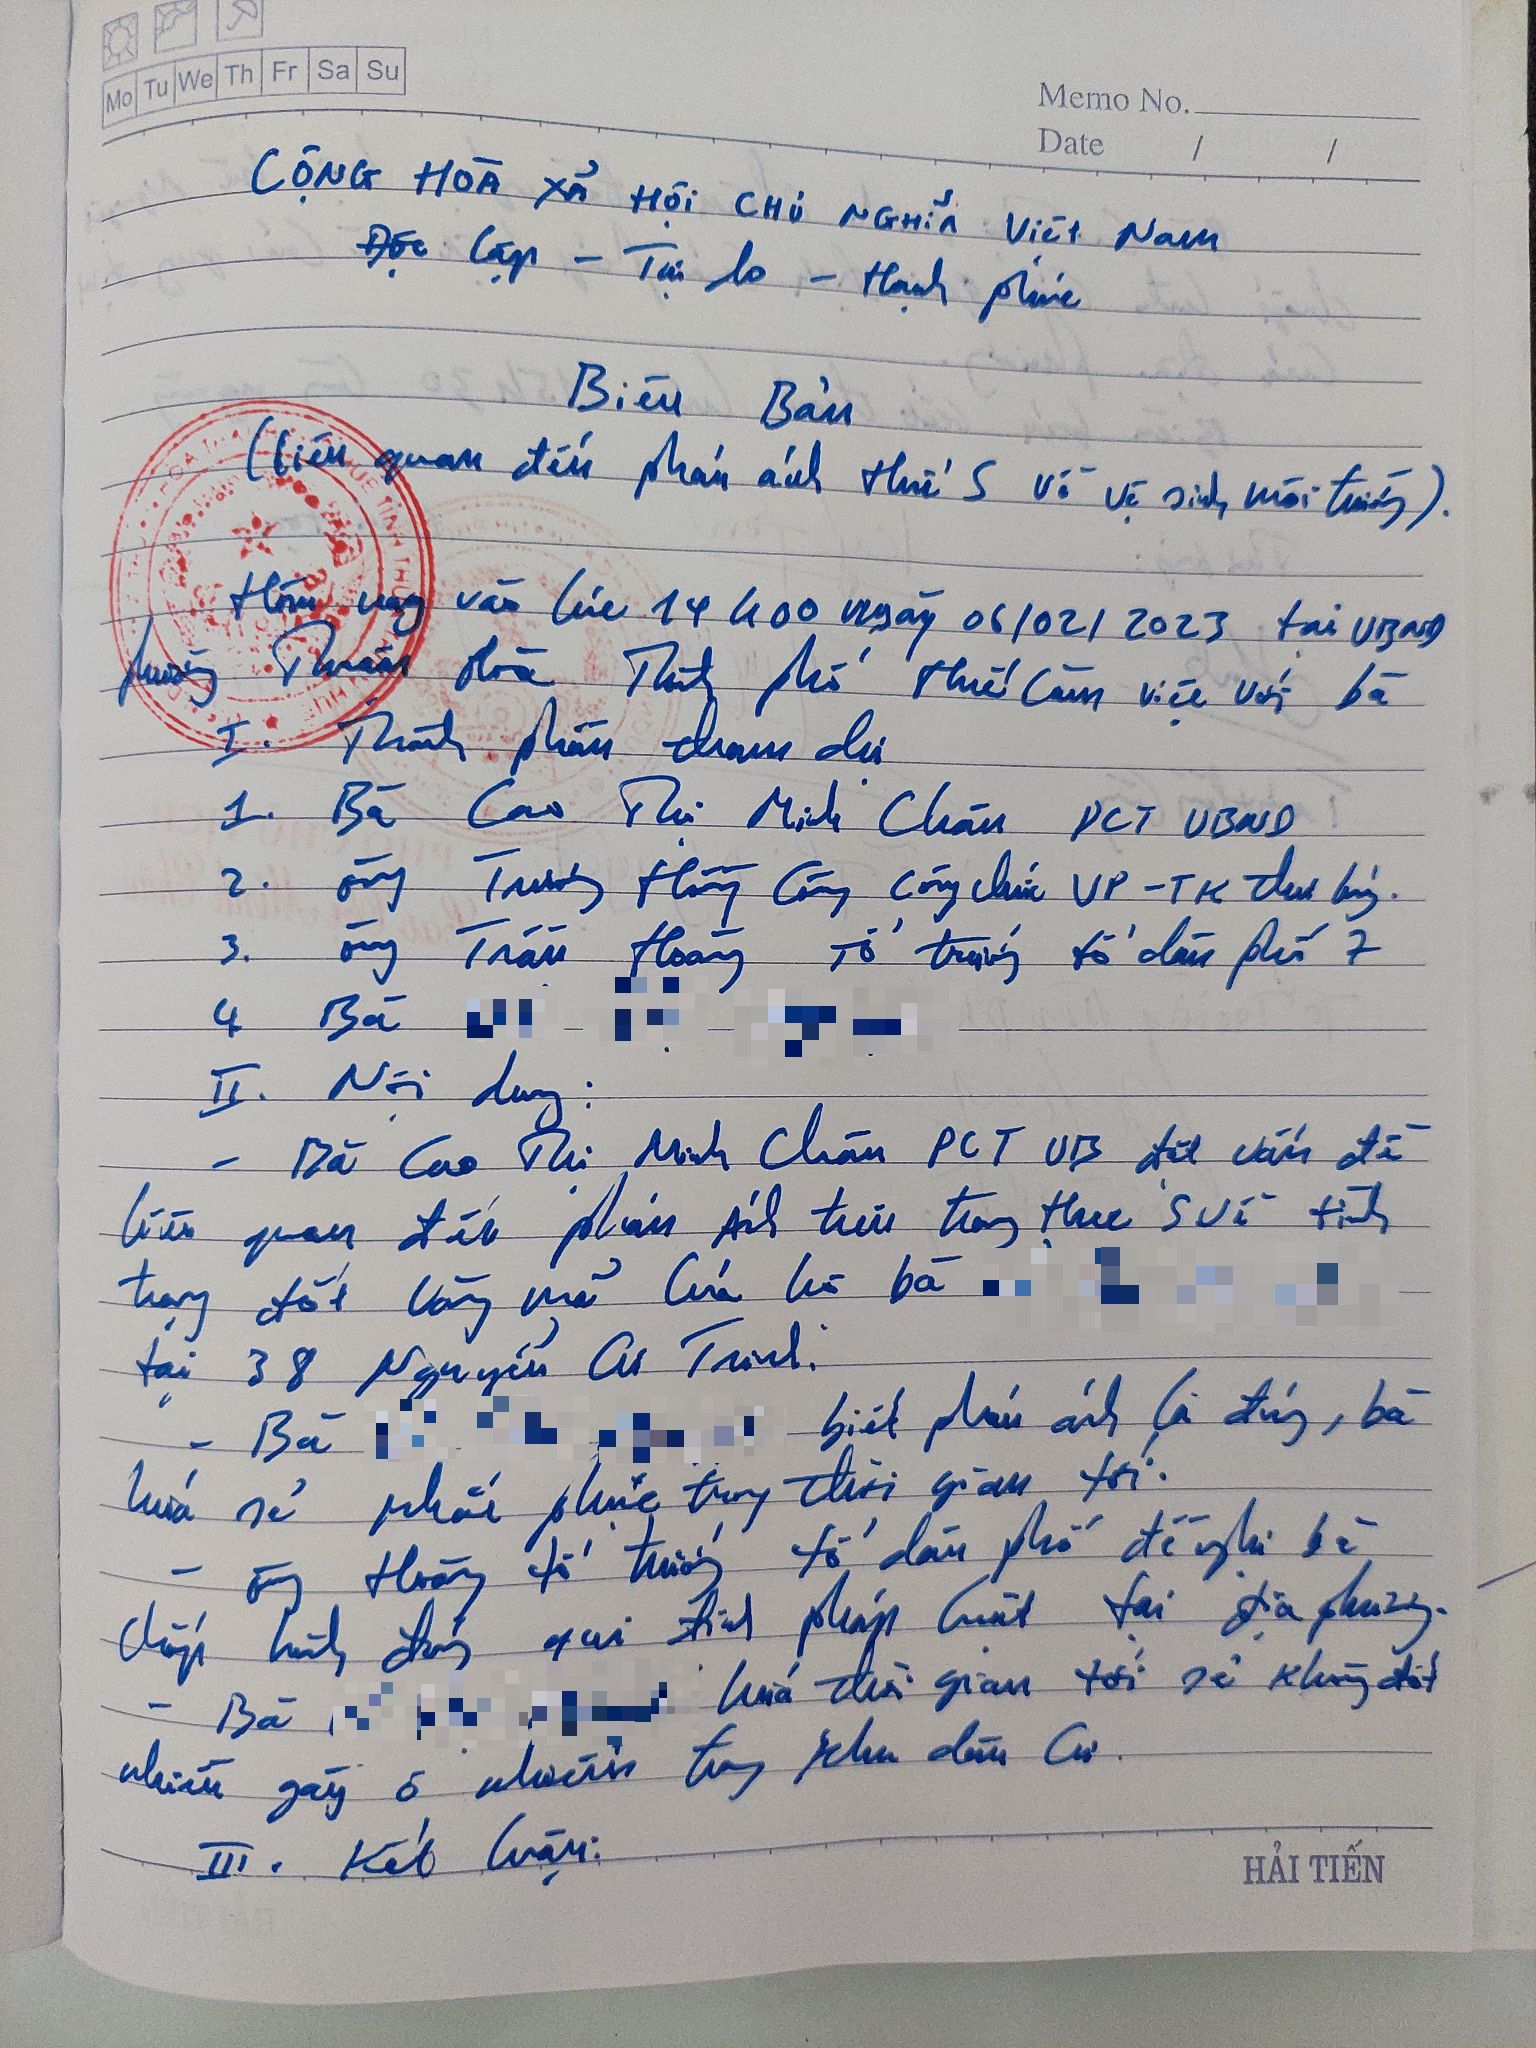 Mo Tu We Th Fr Sa Su
Memo No.
Date / /
CỘNG HÒA XÃ HỘI CHỦ NGHĨA Việt Nam
Độc lập - Tự do - Hạnh phúc
Biên Bản
(Liên quan đến phản ánh Huế S về vệ sinh môi trường).
Hôm nay vào lúc 14h00 ngày 06/02/2023 tại UBND
phường Thuận Hòa Thành phố Huế làm việc với bà
I. Thành phần tham dự
1. Bà Cao Thị Minh Châu PCT UBND
2. Ông Trương Hồng Công công chức VP-TK
3. Ông Trần Hoàng Tổ trưởng tổ dân phố 7
4 Bà
II. Nội dung:
- Bà Cao Thị Minh Châu PCT UB đặt vấn đề
liên quan đến phản ánh trên trang Hue S về tình
trạng đốt vàng mã của hộ bà
tại 38 Nguyễn Cư Trinh.
- Bà biết phản ánh là đúng, bà
hứa sẽ khắc phục trong thời gian tới.
- Ông Hoàng tổ trưởng tổ dân phố đề nghị bà
chấp hành đúng qui định pháp luật tại địa phương.
- Bà hứa thời gian tới sẽ không đốt
nhiều gây ô nhiễm trong khu dân cư.
III. Kết luận:
HẢI TIẾN